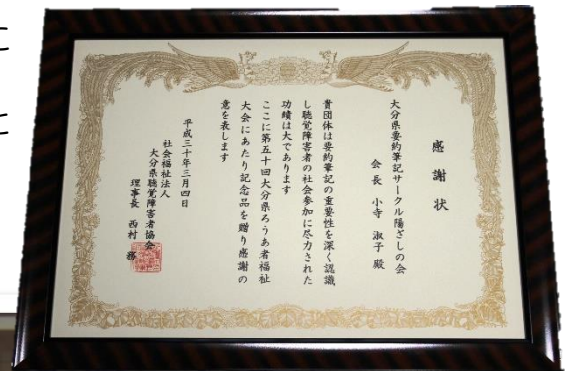 に
に
感謝状
大分県要約筆記サークル陽ざしの会
会長 小寺 淑子 殿
貴団体は要約筆記の重要性を深く認識
し聴覚障害者の社会参加に尽力された
功績は大であります
ここに第五十回大分県ろうあ者福祉
大会にあたり記念品を贈り感謝の
意を表します
平成三十年三月四日
社会福祉法人
大分県聴覚障害者協会
理事長 西村 務